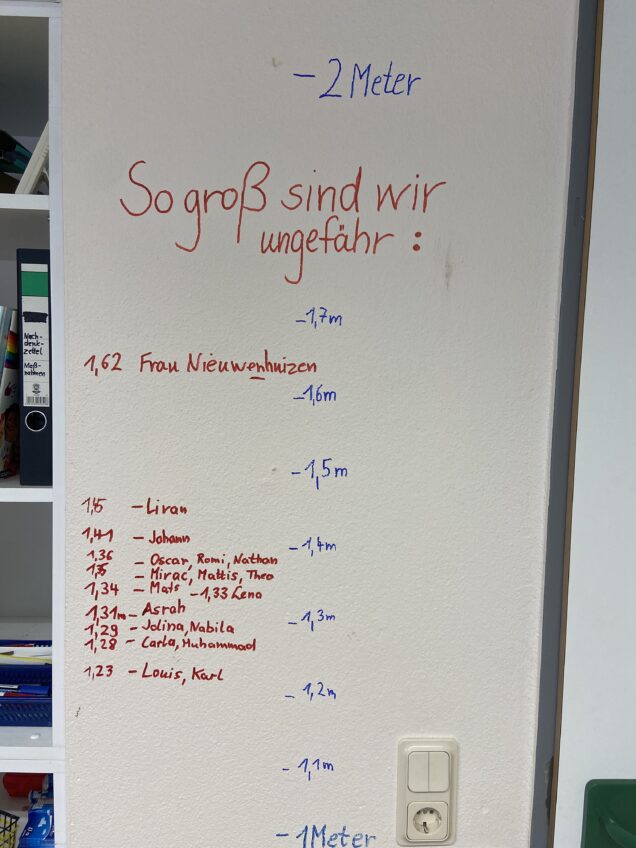 - 2 Meter
So groß sind wir
ungefähr :
- 1,7m
1,62 Frau Nieuwenhuizen
- 1,6m
- 1,5m
1,45 - Liran
1,41 - Johann
- 1,4m
1,36 - Oscar, Romi, Nathan
1,35 - Mirac, Mattis, Theo
1,34 - Mats - 1,33 Lena
1,31m - Asrah
- 1,3m
1,29 - Jolina, Nabila
1,28 - Carla, Muhammad
1,23 - Louis, Karl
- 1,2m
- 1,1m
- 1 Meter
Nach-
denk-
zettel
Maß-
nahmen